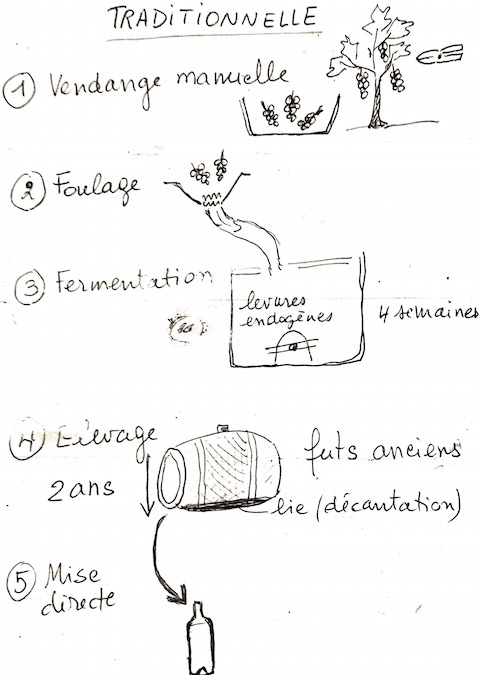 TRADITIONNELLE
1 Vendange manuelle
2 Foulage
3 Fermentation
levures
endogènes
4 semaines
4 Elevage
2 ans
futs anciens
lie (décantation)
5 Mise
directe